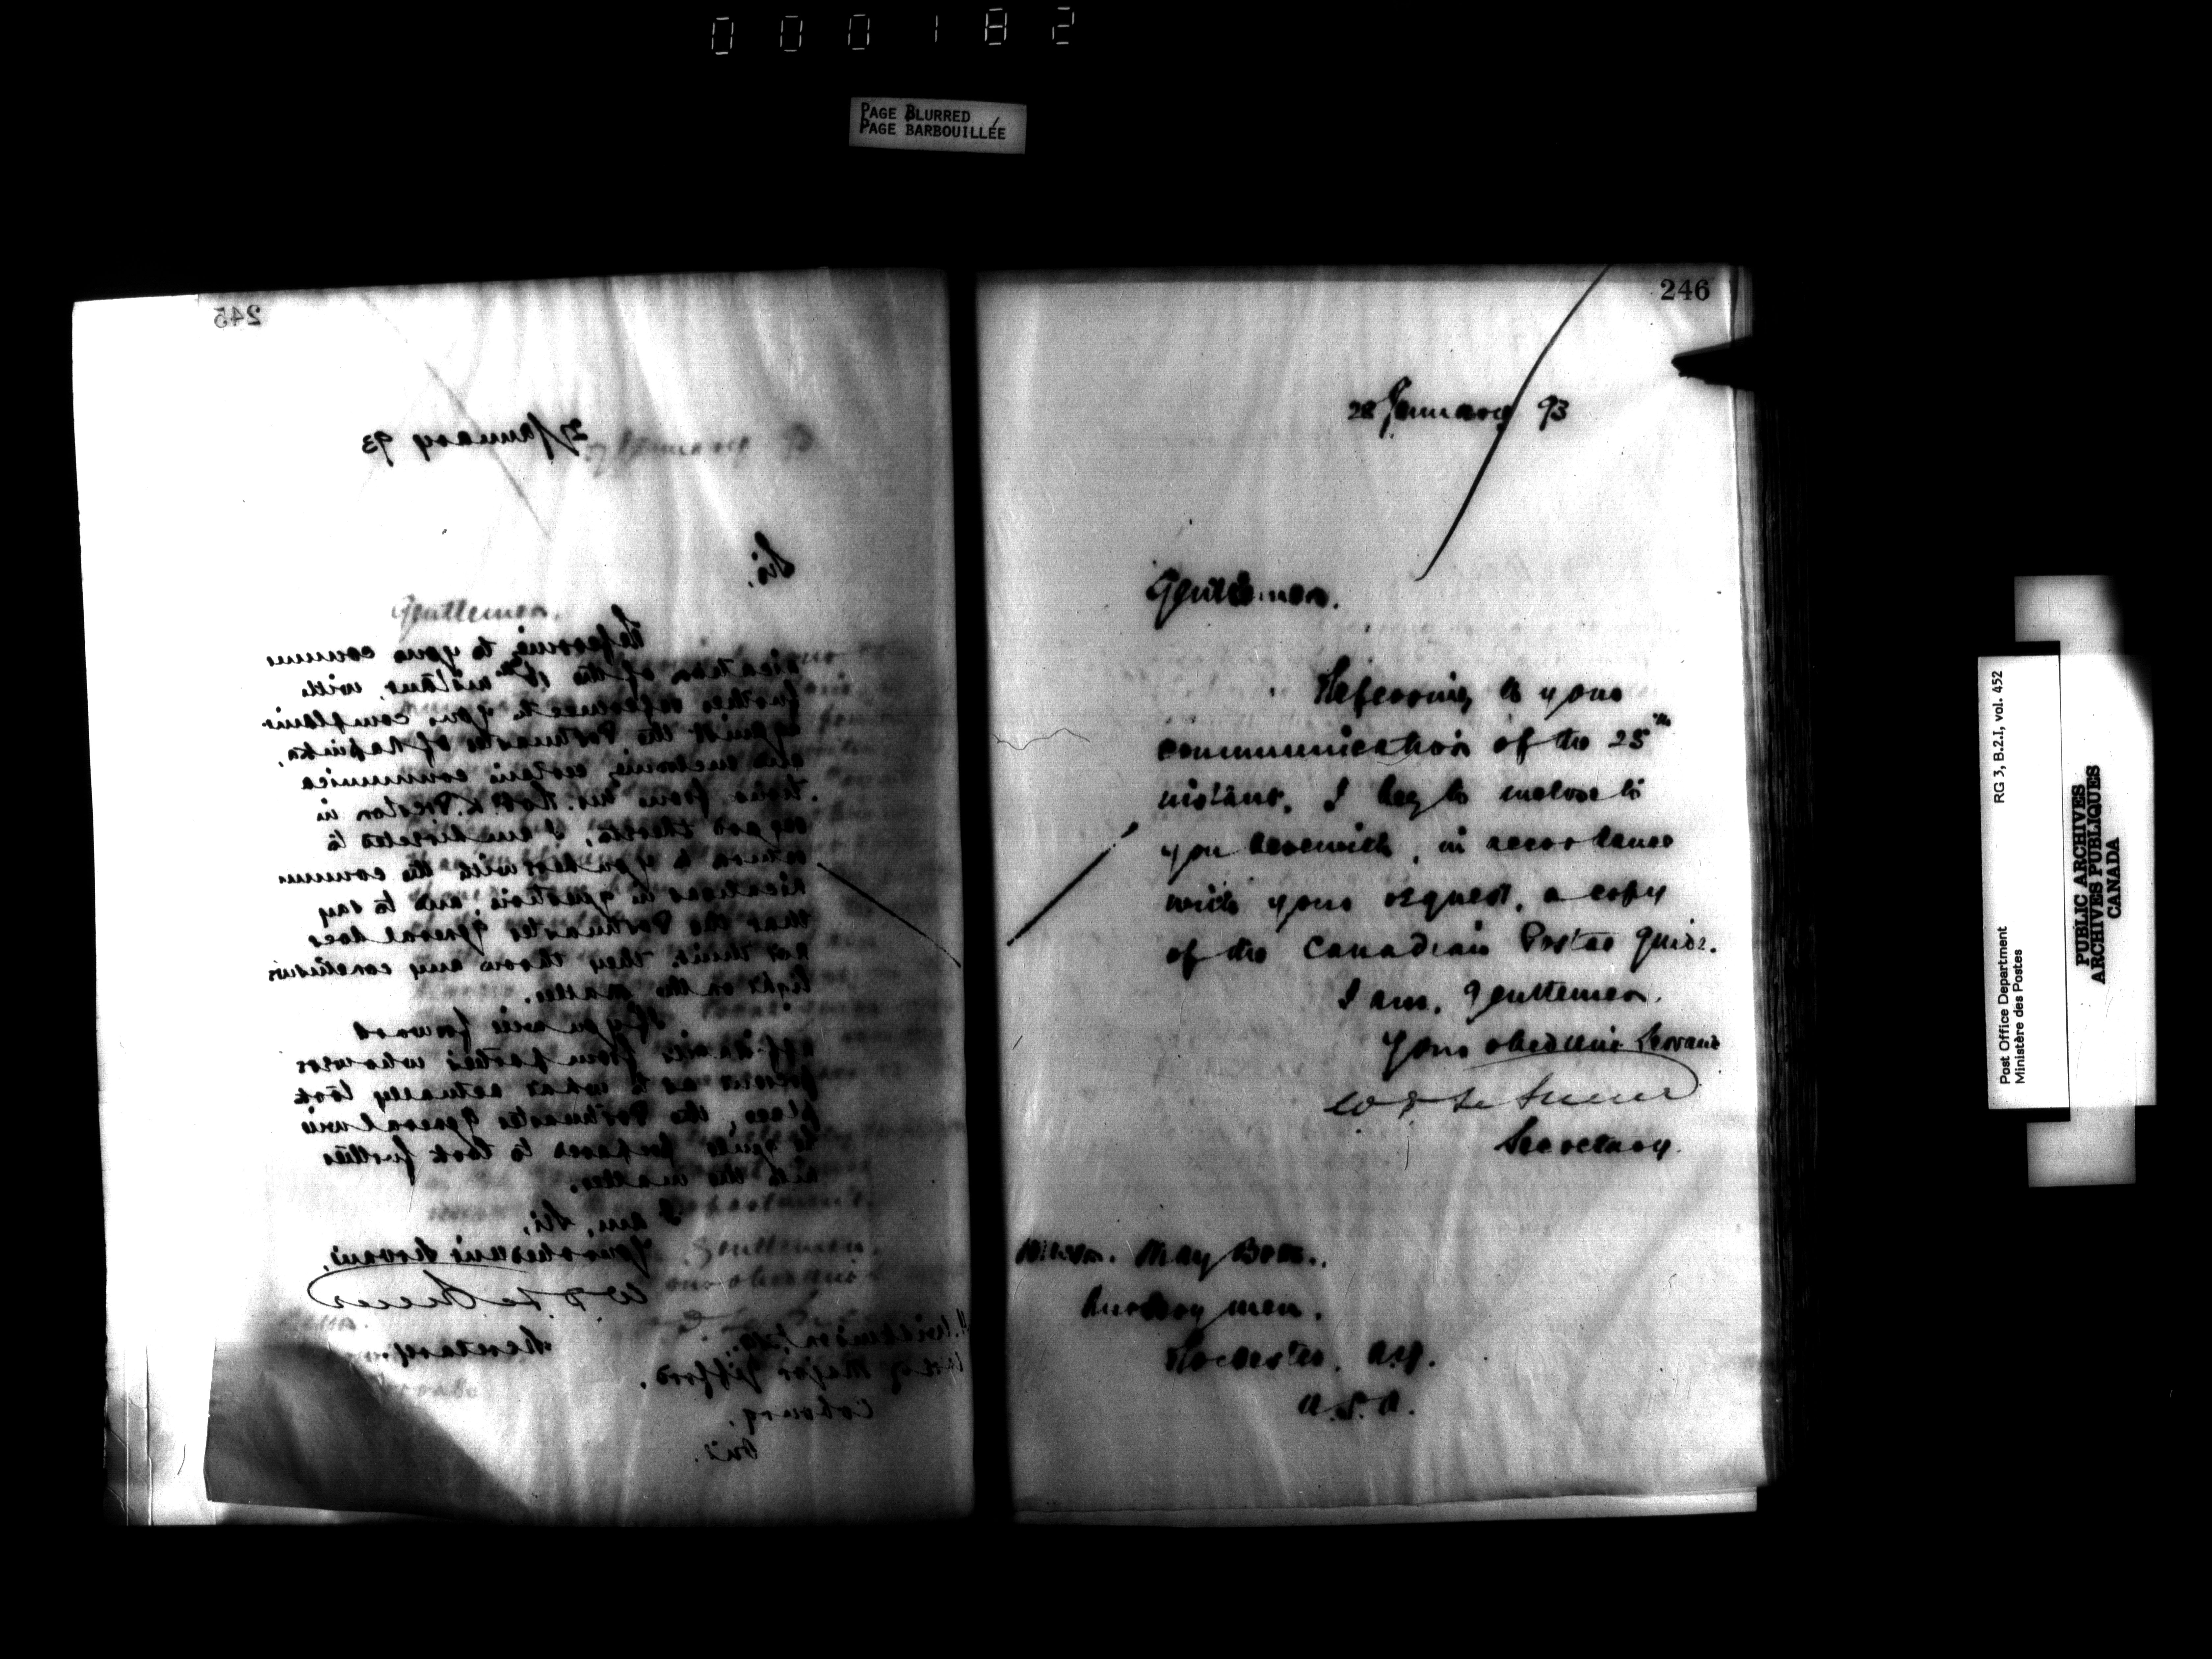 000182
PAGE BLURRED
PAGE BARBOUILLÉE
245
27 January 93
Sir,
Referring to your commu
nication of the instant, with
further reference to your complaint
against the Postmaster of Napinka,
and enclosing certain communica
tions from Mr. Preston in
regard thereto, I am directed to
return to you herewith the commu
nications in question, and to say
that the Postmaster General does
not think they throw any conclusive
light on the matter.
If you will forward
affidavits from parties who were
present as to what actually took
place, the Postmaster General will
be quite prepared to look further
into the matter.
I am, Sir,
Your obedient Servant,
W D LeSueur
Secretary.
Major Gifford,
Cobourg,
Ont.
246
28 January 93
Gentlemen.
Referring to your
communication of the 25th
instant, I beg to enclose to
you herewith, in accordance
with your request, a copy
of the Canadian Postal Guide.
I am, Gentlemen.
Your obedient Servant
W D LeSueur
Secretary.
Messrs. May Bros.,
Nurserymen,
Rochester, N.Y.
U.S.A.
Post Office Department
Ministère des Postes
RG 3, B.2.I, vol. 452
PUBLIC ARCHIVES
ARCHIVES PUBLIQUES
CANADA